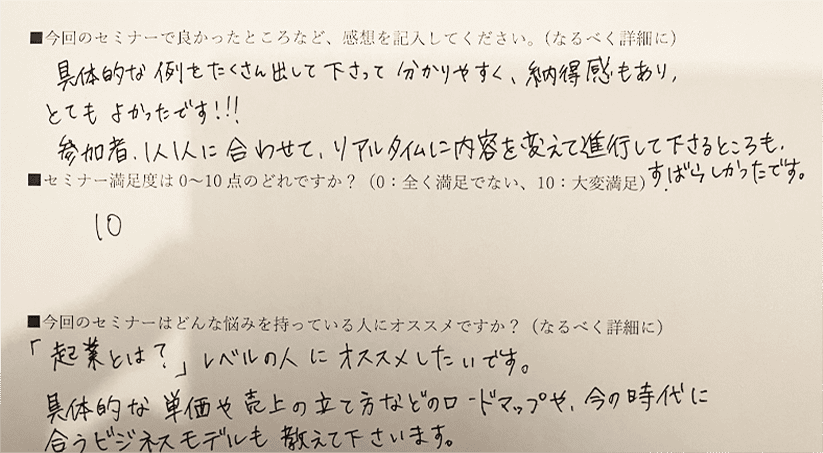 ■今回のセミナーで良かったところなど、感想を記入してください。（なるべく詳細に）
具体的な例をたくさん出して下さって分かりやすく、納得感もあり、
とてもよかったです!!!
参加者、1人1人に合わせて、リアルタイムに内容を変えて進行して下さるところも、
すばらしかったです。
■セミナー満足度は0〜10点のどれですか？（0：全く満足でない、10：大変満足）
10
■今回のセミナーはどんな悩みを持っている人にオススメですか？（なるべく詳細に）
「起業とは？」レベルの人にオススメしたいです。
具体的な単価や売上の立て方などのロードマップや、今の時代に
合うビジネスモデルも教えて下さいます。